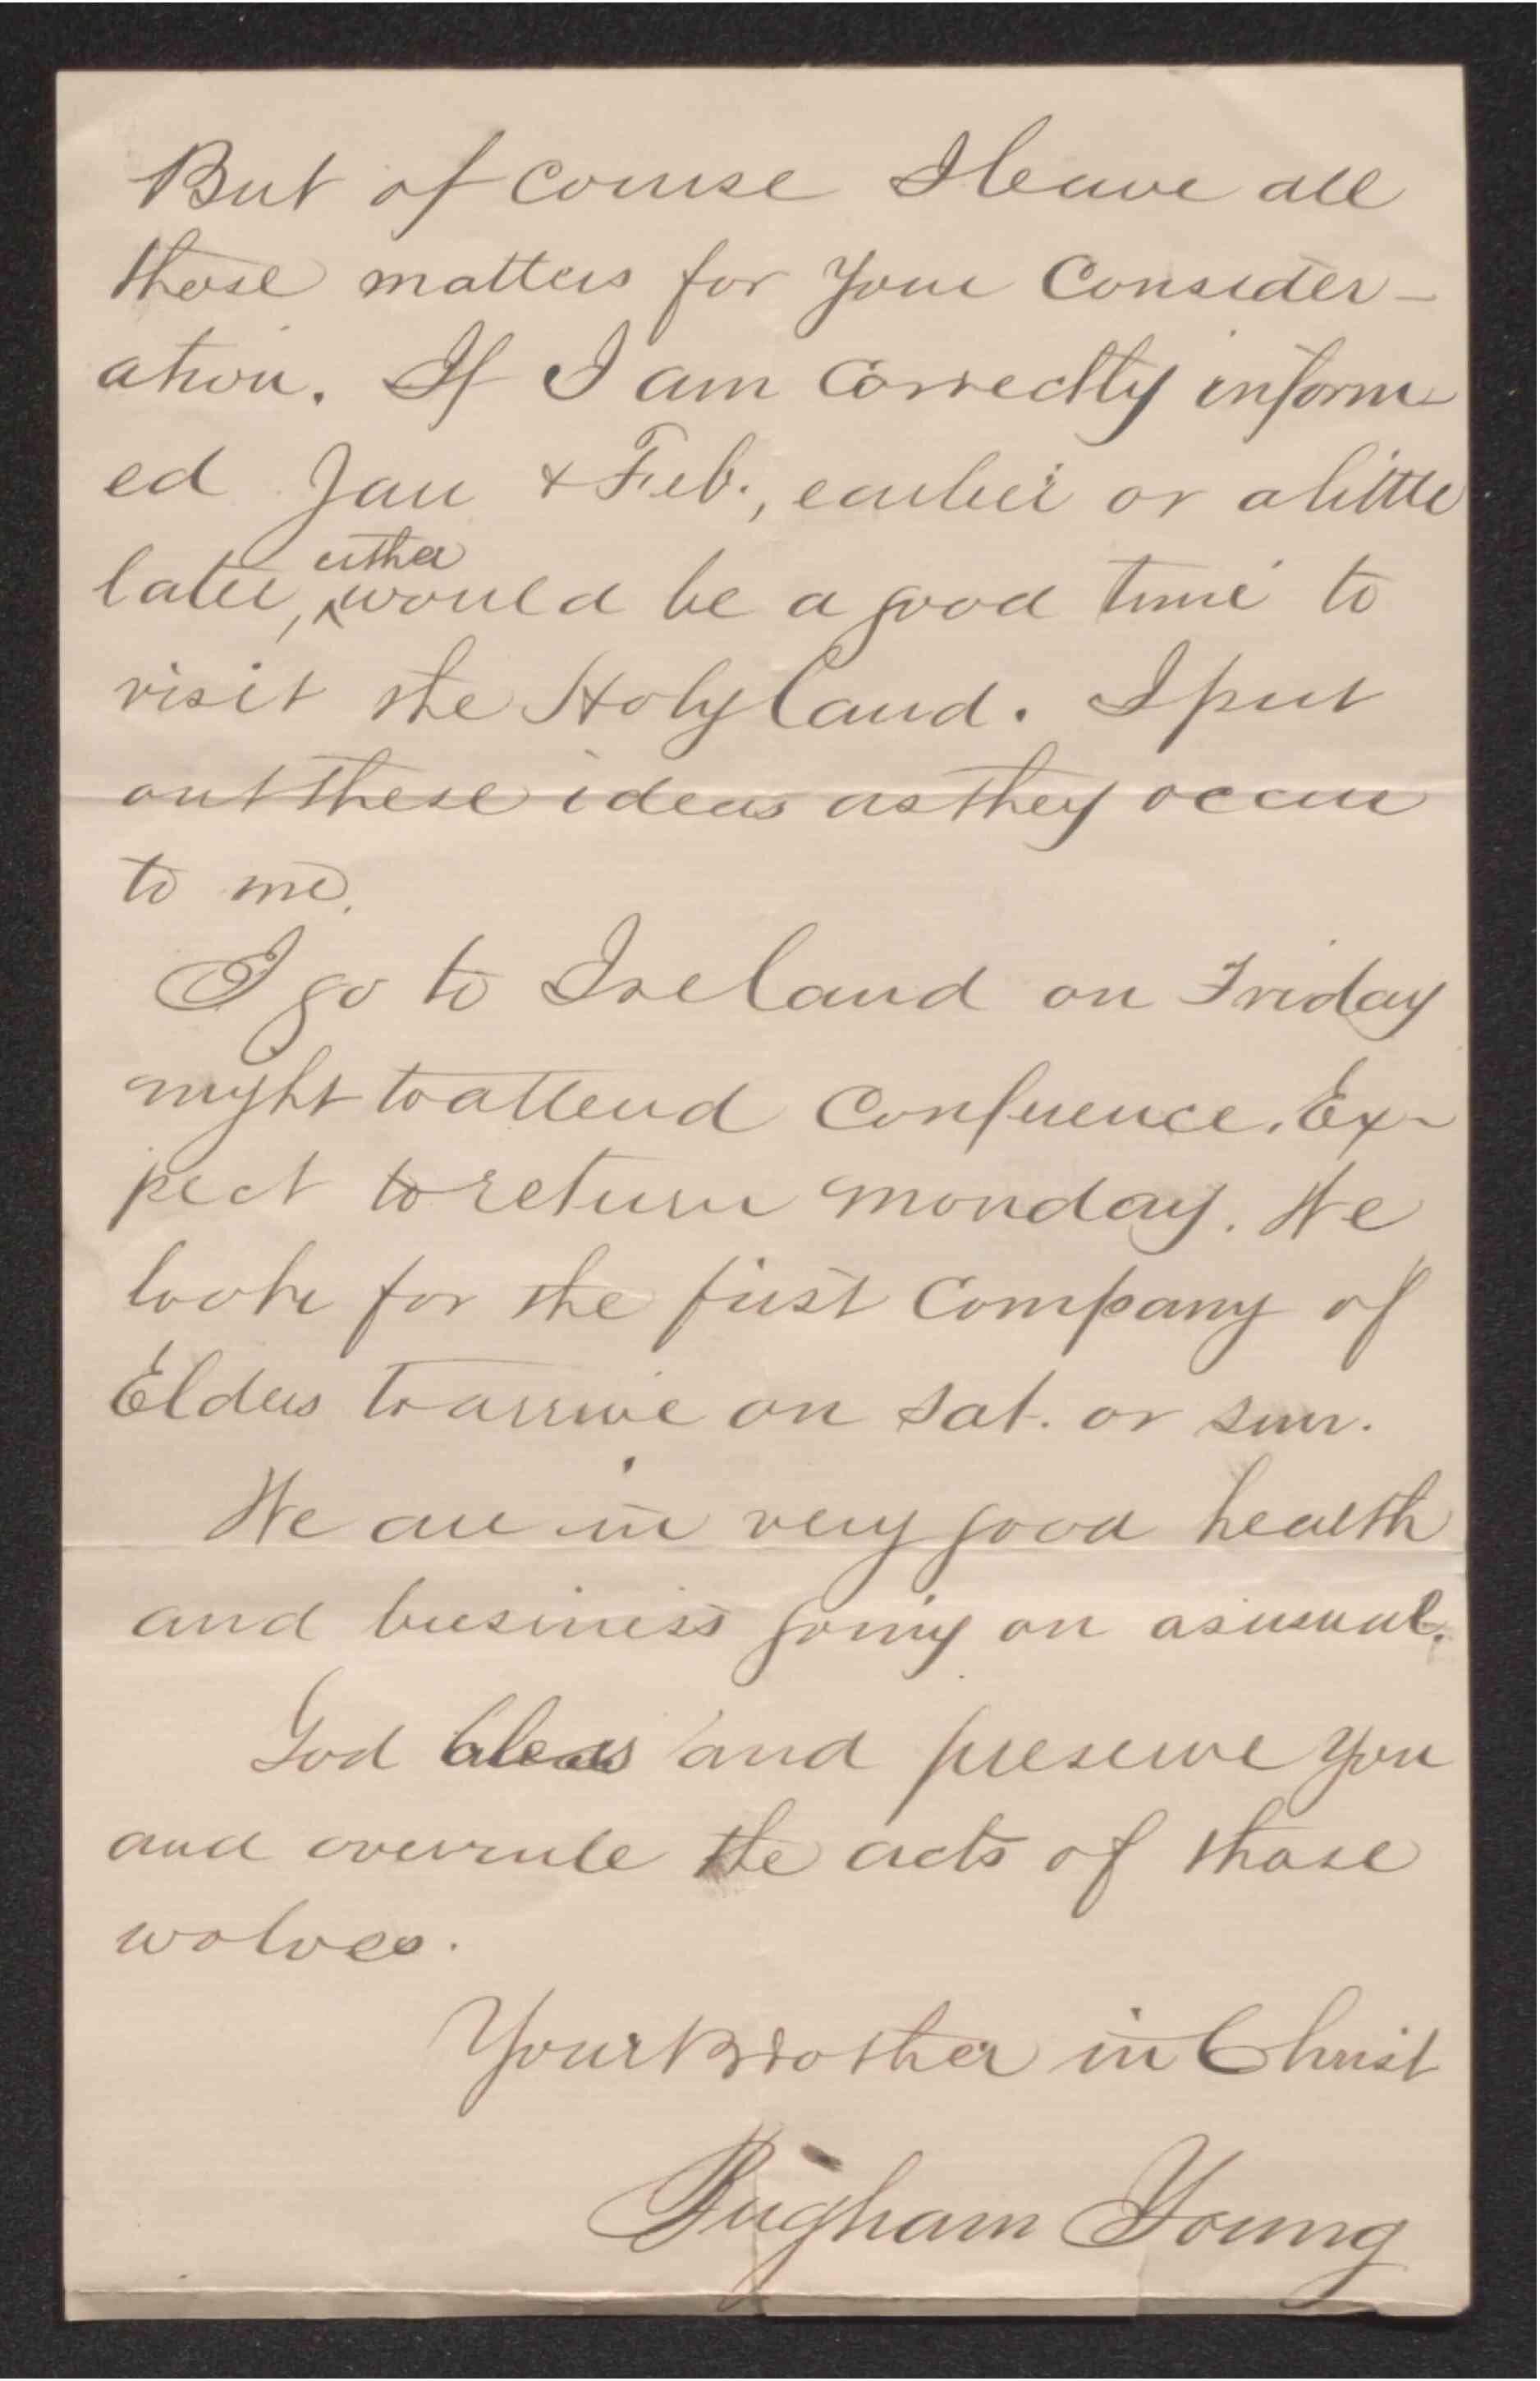 But of course I leave all
those matters for your Consider-
ation. If I am correctly inform
ed Jan & Feb., earlier or a little
either
later, ^would be a good time to
visit the Holy Land. I put
out these ideas as they occur
to me.
I go to Ireland on Friday
night to attend Conference. Ex-
pect to return monday. We
look for the first Company of
Elders to arrive on Sat. or Sun.
We are in very good health
and business going on as usual.
God bless and preserve you
and overrule the acts of those
wolves.
Your Brother in Christ
Brigham Young